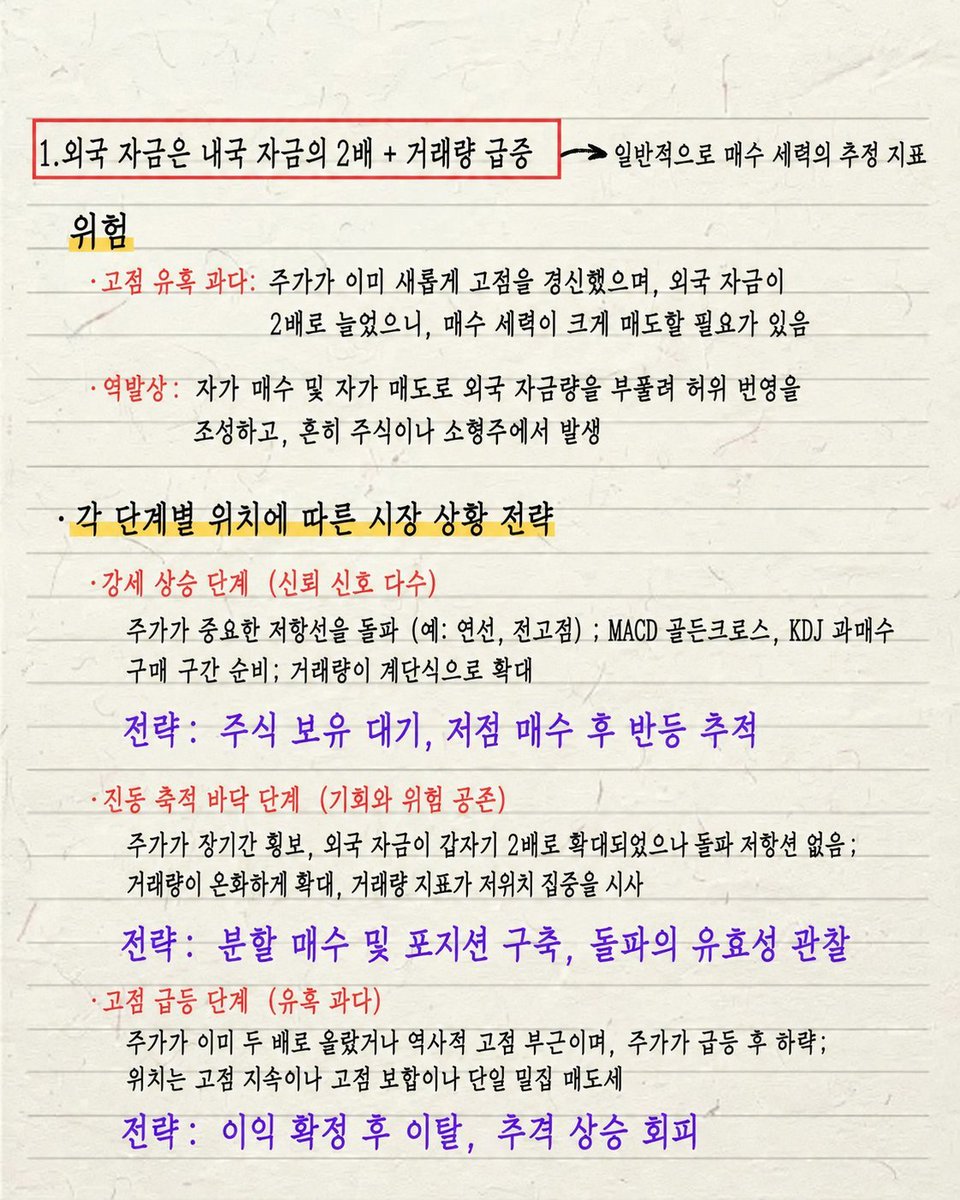 1.외국 자금은 내국 자금의 2배 + 거래량 급증 → 일반적으로 매수 세력의 추정 지표
위험
·고점 유혹 과다: 주가가 이미 새롭게 고점을 경신했으며, 외국 자금이
2배로 늘었으니, 매수 세력이 크게 매도할 필요가 있음
·역발상: 자가 매수 및 자가 매도로 외국 자금량을 부풀려 허위 번영을
조성하고, 흔히 주식이나 소형주에서 발생
·각 단계별 위치에 따른 시장 상황 전략
·강세 상승 단계 (신뢰 신호 다수)
주가가 중요한 저항선을 돌파 (예: 연선, 전고점) ; MACD 골든크로스, KDJ 과매수
구매 구간 순비; 거래량이 계단식으로 확대
전략: 주식 보유 대기, 저점 매수 후 반등 추적
·진동 축적 바닥 단계 (기회와 위험 공존)
주가가 장기간 횡보, 외국 자금이 갑자기 2배로 확대되었으나 돌파 저항션 없음;
거래량이 온화하게 확대, 거래량 지표가 저위치 집중을 시사
전략: 분할 매수 및 포지션 구축, 돌파의 유효성 관찰
·고점 급등 단계 (유혹 과다)
주가가 이미 두 배로 올랐거나 역사적 고점 부근이며, 주가가 급등 후 하략;
위치는 고점 지속이나 고점 보합이나 단일 밀집 매도세
전략: 이익 확정 후 이탈, 추격 상승 회피